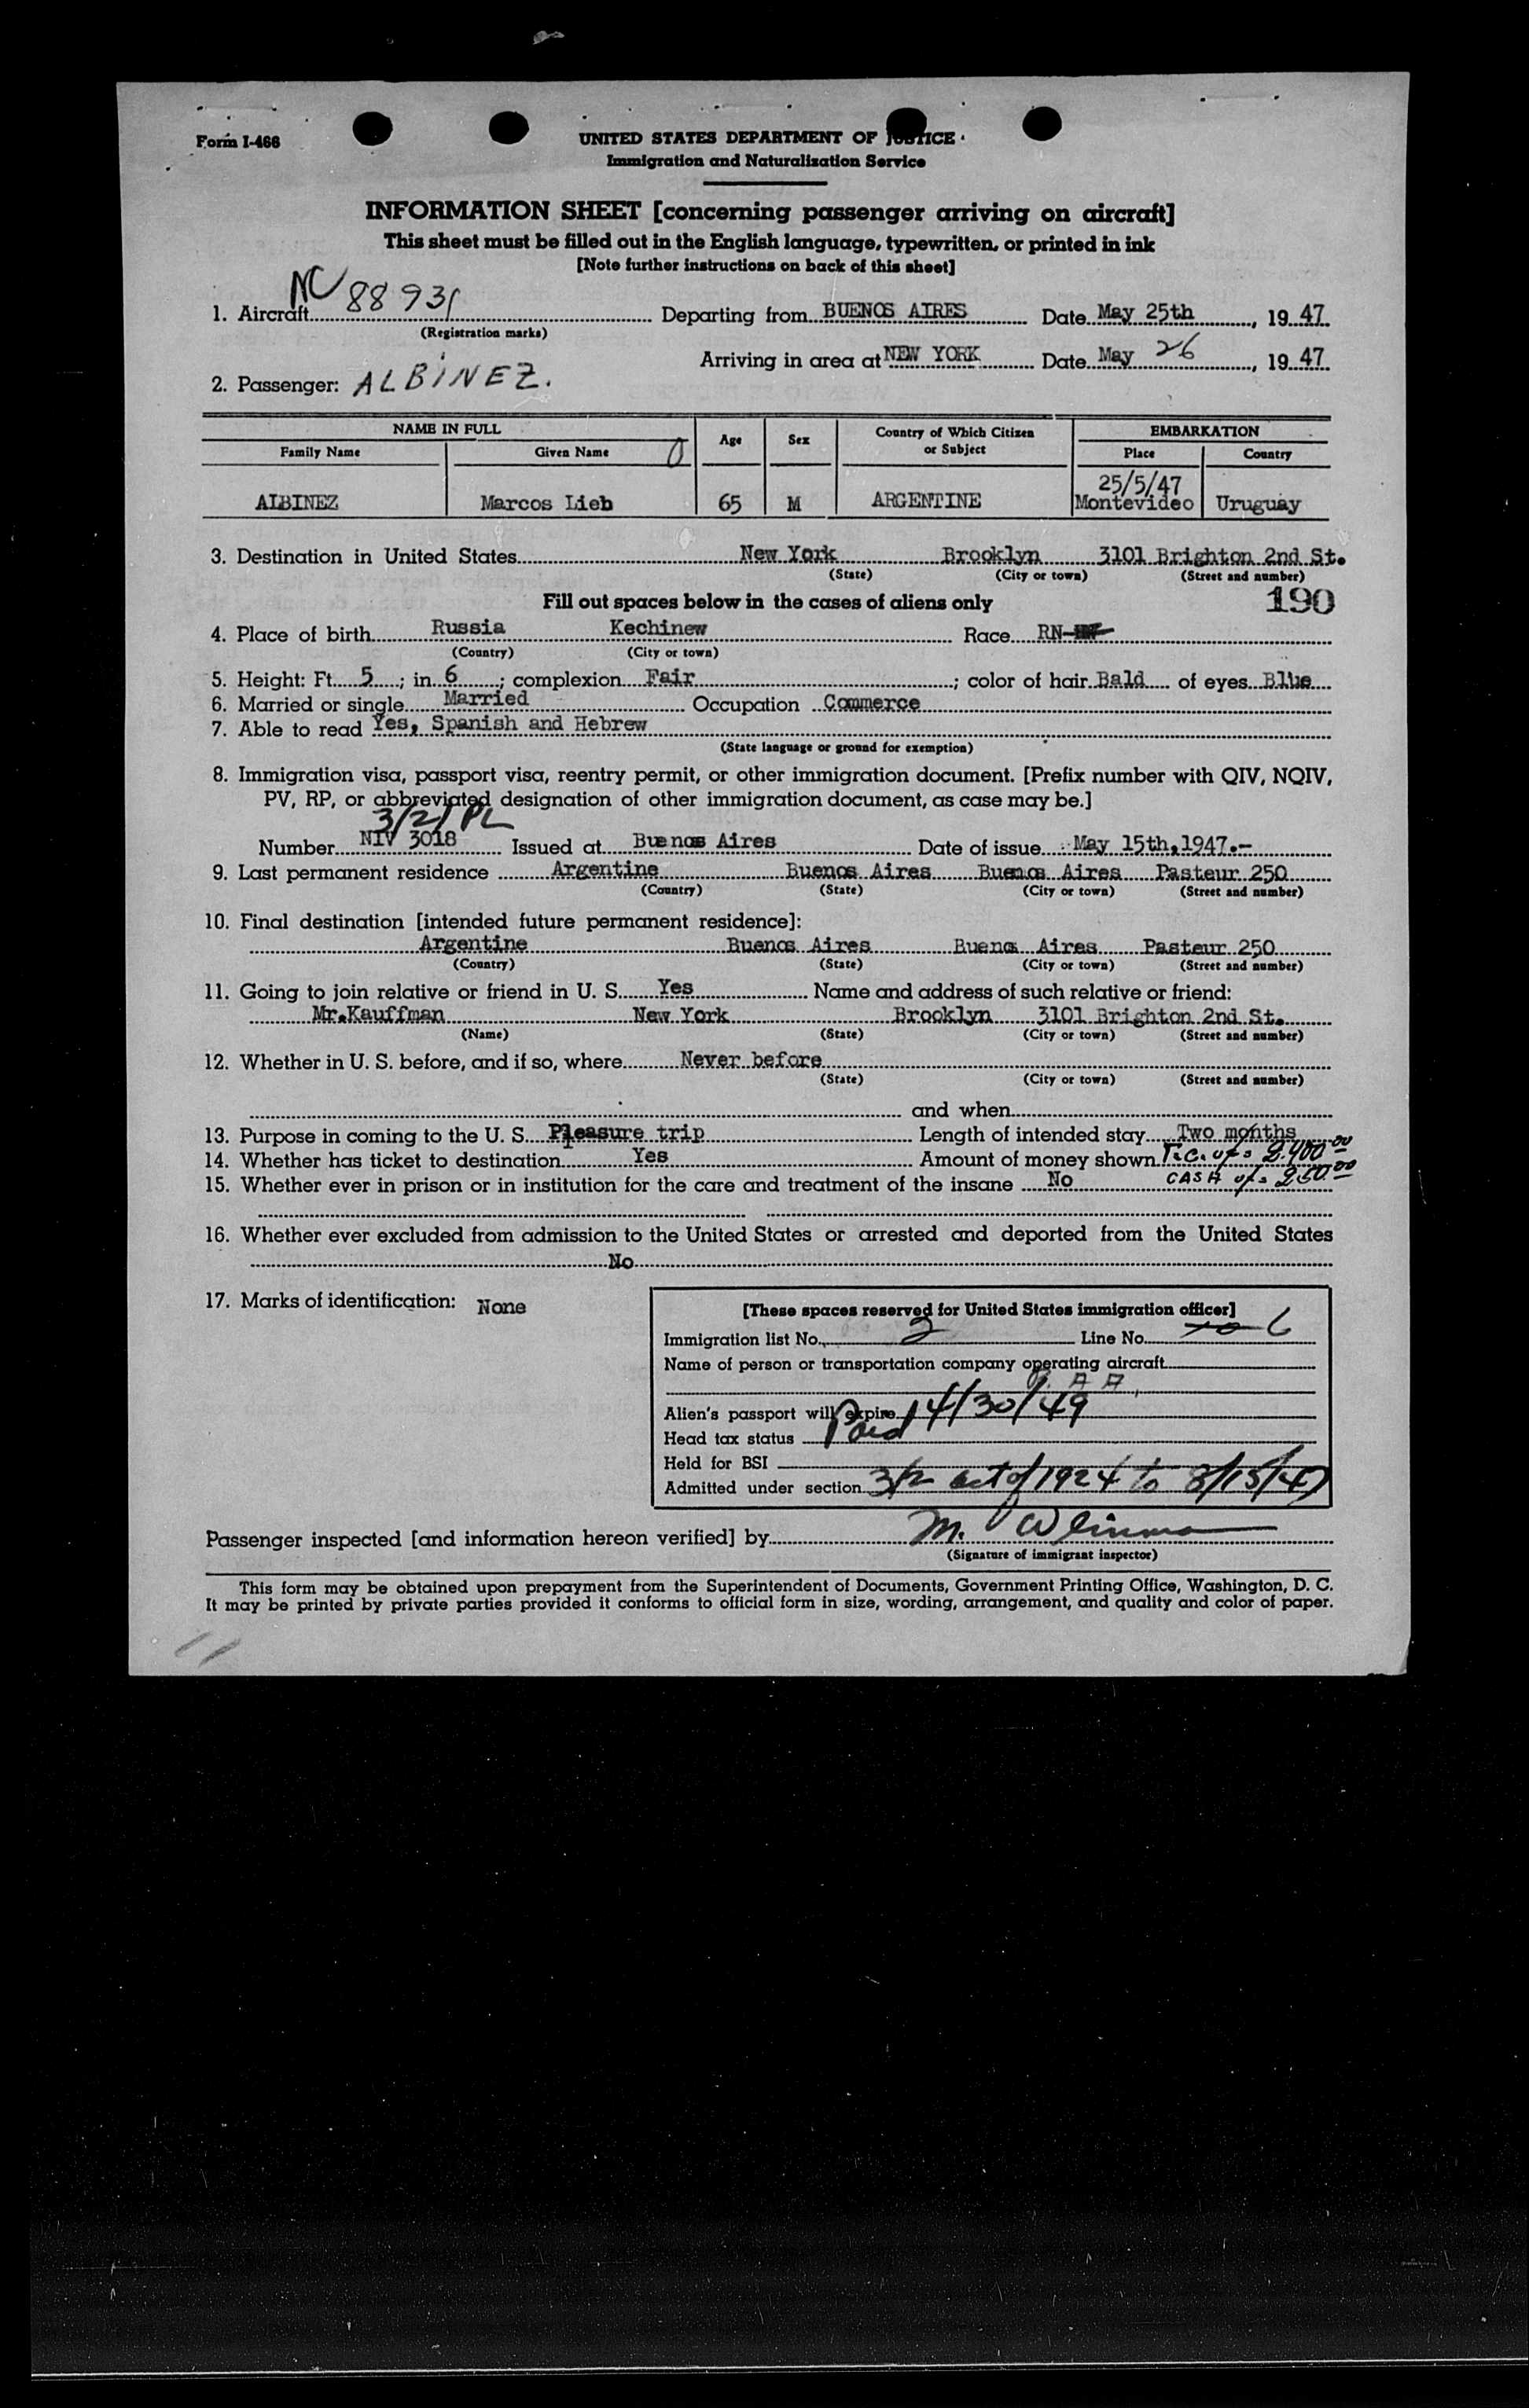 Form I-466
UNITED STATES DEPARTMENT OF JUSTICE
Immigration and Naturalization Service
INFORMATION SHEET [concerning passenger arriving on aircraft]
This sheet must be filled out in the English language, typewritten, or printed in ink
[Note further instructions on back of this sheet]
1. Aircraft NC 88931 Departing from BUENOS AIRES Date May 25th, 19 47
(Registration marks)
Arriving in area at NEW YORK Date May 26, 19 47
2. Passenger: ALBINEZ.
NAME IN FULL Age Sex Country of Which Citizen or Subject EMBARKATION
Family Name Given Name Place Country
25/5/47
ALBINEZ Marcos Lieb 65 M ARGENTINE Montevideo Uruguay
3. Destination in United States New York Brooklyn 3101 Brighton 2nd St.
(State) (City or town) (Street and number)
Fill out spaces below in the cases of aliens only 190
4. Place of birth Russia Kechinew Race RN
(Country) (City or town)
5. Height: Ft. 5; in. 6; complexion Fair; color of hair Bald of eyes Blue
6. Married or single Married Occupation Commerce
7. Able to read Yes, Spanish and Hebrew
(State language or ground for exemption)
8. Immigration visa, passport visa, reentry permit, or other immigration document. [Prefix number with QIV, NQIV,
PV, RP, or abbreviated designation of other immigration document, as case may be.]
3/2/PL
Number NIV 3018 Issued at Buenos Aires Date of issue May 15th,1947.-
9. Last permanent residence Argentine Buenos Aires Buenos Aires Pasteur 250
(Country) (State) (City or town) (Street and number)
10. Final destination [intended future permanent residence]:
Argentine Buenos Aires Buenos Aires Pasteur 250
(Country) (State) (City or town) (Street and number)
11. Going to join relative or friend in U. S. Yes Name and address of such relative or friend:
Mr.Kauffman New York Brooklyn 3101 Brighton 2nd St.
(Name) (State) (City or town) (Street and number)
12. Whether in U. S. before, and if so, where Never before
(State) (City or town) (Street and number)
and when
13. Purpose in coming to the U. S. Pleasure trip Length of intended stay Two months
14. Whether has ticket to destination Yes Amount of money shown T.C. u/s 2.400.00
15. Whether ever in prison or in institution for the care and treatment of the insane No CASH u/s 250.00
16. Whether ever excluded from admission to the United States or arrested and deported from the United States
No
17. Marks of identification: None
[These spaces reserved for United States immigration officer]
Immigration list No. 2 Line No. 6
Name of person or transportation company operating aircraft
P. A A.
Alien's passport will expire 4/30/49
Head tax status Paid
Held for BSI
Admitted under section 3/2 act of 1924 to 8/15/47
Passenger inspected [and information hereon verified] by M.
(Signature of immigrant inspector)
This form may be obtained upon prepayment from the Superintendent of Documents, Government Printing Office, Washington, D. C.
It may be printed by private parties provided it conforms to official form in size, wording, arrangement, and quality and color of paper.